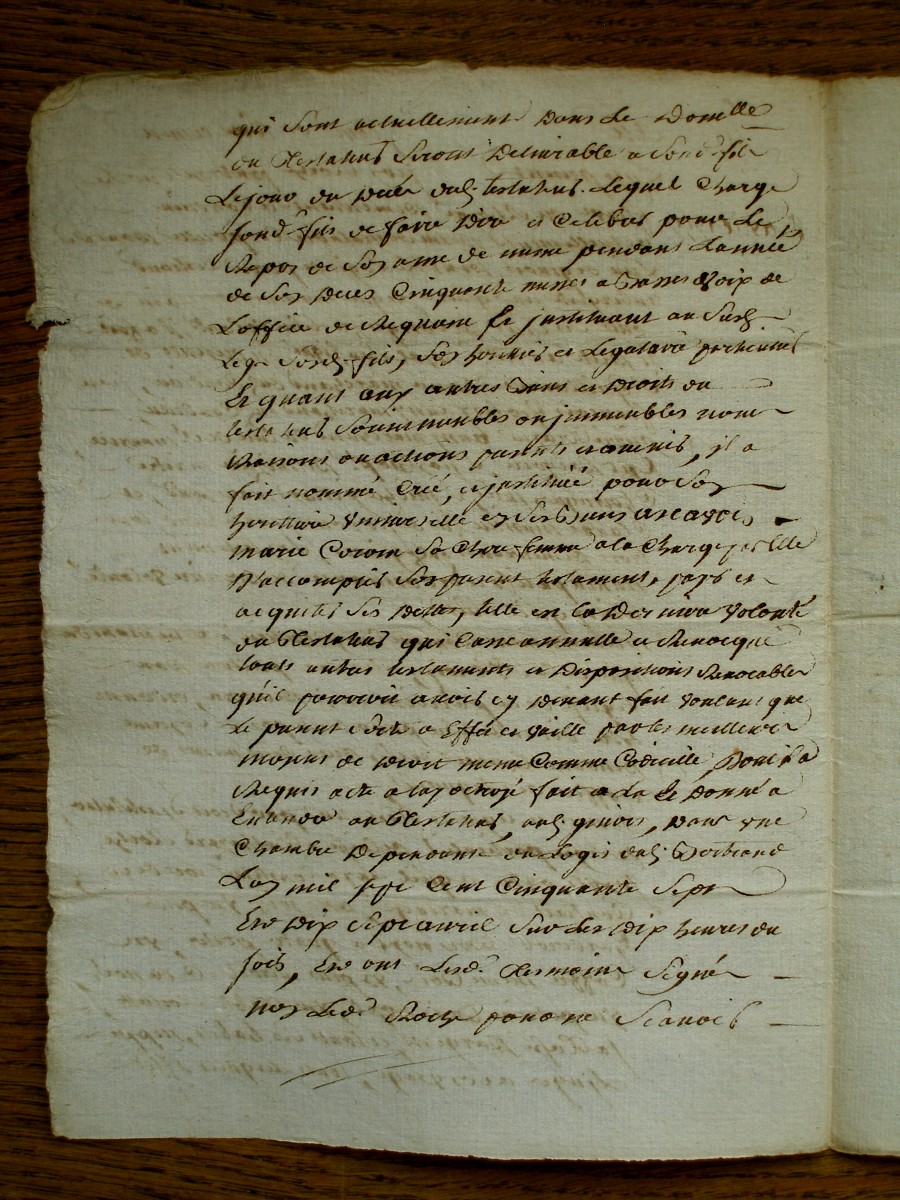 qui sont actuellement dans le domelle
du testateur seront delivrable a sond. fils
le jour du deces dud. testateur lequel charge
sond. fils de faire dire et celebrer pour le
repos de son ame de meme pendant lannée
de son deces cinquante messes a basses voix de
loffice de requiem le justituant au susd.
legs sond. fils, son heritier et legataire particulier
Et quant aux autres biens et droits du
testateur soient meubles ou jmmeubles noms
raisons ou actions presents et avenir, jl a
fait nommé creé, et justitué pour son
heritiere universelle en ses biens a scavoir
marie sa chere femme a la charge par Elle
daccomplir son present testament, payer et
acquiter ses dettes, telle est la derniere volonté
du testateur qui casse annulle et revocque
touts autres testaments et dispositions revocables
quil pourroit avoir cy devant fait voulant que
le present acte a Effet et vaille par les meilleurs
moyens de droit meme comme codicille dont il a
requis acte a luy octroyé fait leu et donné a
au testateur, dans une
chambre dependante du logis dud. Bertrand
lan mil sept cent cinquante sept
Et le dix sept avril sur les dix heures du
soir, Et ont lesd. tesmoins signé
non led. Roche pour ne scavoir